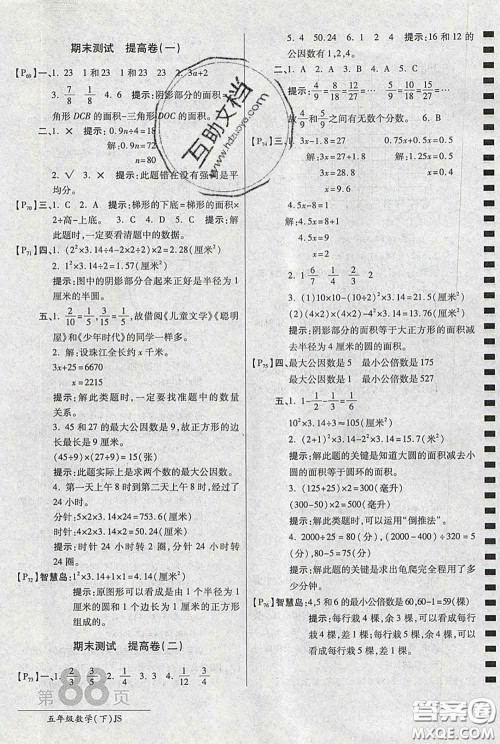 期末测试 提高卷(一)
[P69]一、1. 23 1和23 1和23 23 2. 3a+2
3. 7/8 1/8 4. 6 提示:阴影部分的面积=
角形DCB的面积-三角形DOC的面积。
二、1. × 提示:0.9n÷4=18
解:0.9n=72
n=80
2. √ 3. × 提示:此题错在没有强调是平
均分。
[P70]三、1. A 2. A 提示:梯形的下底=梯形的面积×
2÷高-上底。 3. C 4. C 5. D 提示:
解此题时,一定要看清题中的数据。
[P71]四、1. (2²×3.14-2×2÷2×2)÷2=2.28(厘米²)
2. 1²×3.14÷2=1.57(厘米²)
提示:图中的阴影部分合起来正好是半径为1
厘米的半圆。
五、1. 2/10=1/5,3/15=1/5,故借阅《儿童文学》《聪明
屋》和《少年时代》的同学一样多。
2. 解:设珠江全长约x千米。
3x+25=6670
x=2215
提示:解此类题时,一定要找准题中的数量关
系。
3. 45和27的最大公因数是9,故正方形的边
长是9厘米。
(45÷9)×(27÷9)=15(块)
提示:此题实际上是求两个数的最大公因数。
4. 第一天上午8时到第二天上午8时,经过了
24小时。
分针:5×2×3.14×24=753.6(厘米)
时针:4×2×3.14×2=50.24(厘米)
提示:时针24小时转2圈,分针24小时转
24圈。
[P72]智慧岛:1²×3.14+1×1=4.14(厘米²)
提示:原图形可以看成是由1个半径为1厘
米的圆和1个边长为1厘米的正方形组
成的。
期末测试 提高卷(二)
第88页
五年级数学(下)JS
5. 4 50.24 6. 1,2,4 提示:16和12的
公因数有1,2,4。
故4/9和5/9之间有无数个分数。 6. B
[P74]三、1. 3x-1.8=27 0.75x+0.5x=4
解:3x=28.8 解:1.25x=4
x=9.6 x=3.2
4.5x-8=1
解:4.5x=8+1
4.5x=9
x=2
3. (1)10×10-(10÷2)²×3.14=21.5(厘米²)
(2)10×10-(10÷2)²×3.14=21.5(厘米²)
提示:阴影部分的面积等于大正方形的面积减
去半径为5厘米的圆的面积。
[P75]四、最大公因数是5 最小公倍数是175
最大公因数是1 最小公倍数是527
10²×3.14÷3=
2. (2+1)²×3.14-2²×3.14=15.7(米²)
提示:解此题的关键是知道大圆的面积减去
小圆的面积等于圆环的面积。
3. (125+25)×2=300(毫升)
(300+25)×2=650(毫升)
提示:解此类题时,可以运用“倒推法”。
4. 2000÷25=80(分) 80-10=70(分)
提示:解此题的关键是求出龟爬完全程用了多
少分钟。
[P76]智慧岛:4,5和6的最小公倍数是60,60-1=59(棵)
提示:可以看成每行栽4棵,差1棵;每行
栽5棵,差1棵;每行栽6棵,差1棵。